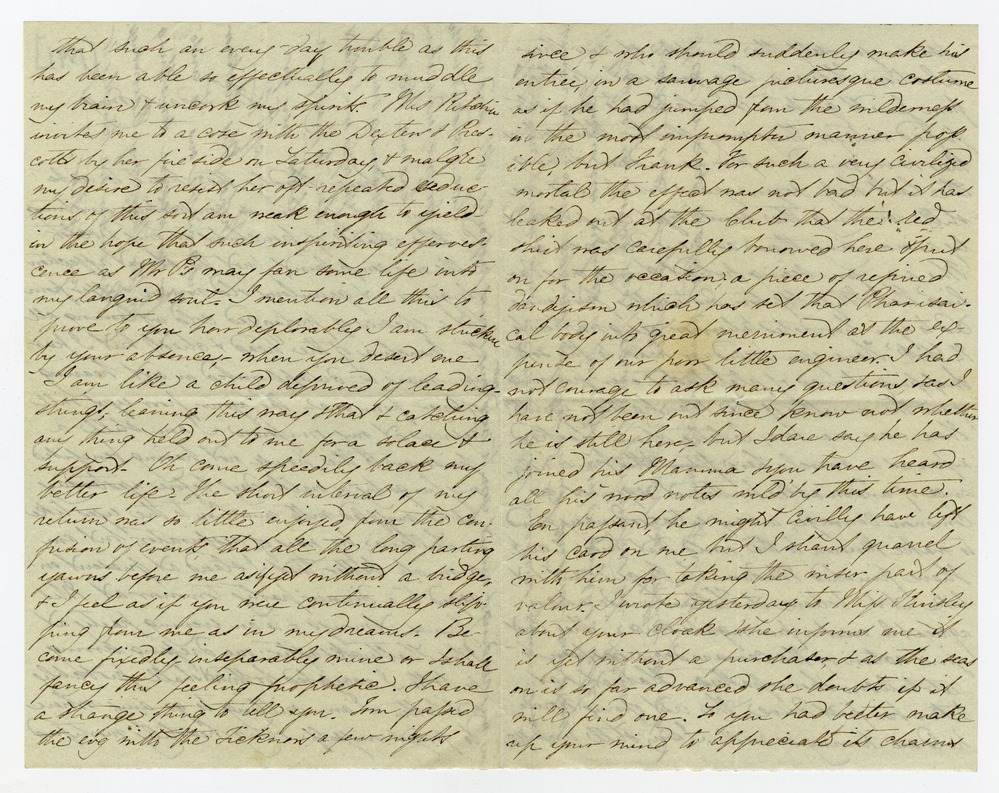 that such an every day trouble as this
has been able so effectually to muddle
my brain & uncork my spirits. Mrs Ritchie
invites me to a cose with the Dexters & Pres-
cotts by her fire side on Saturday, & malgré
my desire to resist her oft-repeated seduc-
tions of this sort am weak enough to yield
in the hope that such inspiriting efferves-
cence as Mr P's may fan some life into
my languid soul. I mention all this to
prove to you how deplorably I am stricken
by your absence, - when you desert me
I am like a child deprived of leading-
strings, leaning this way & that & catching
any thing held out to me for a solace &
support. Oh come speedily back my
better life. The short interval of my
return was so little enjoyed from the con-
fusion of events that all the long parting
yawns before me as if without a bridge,
& I feel as if you were continually slip-
ping from me as in my dreams. Be-
come fixedly, inseparably mine or I shall
fancy this feeling prophetic. I have
a strange thing to tell you. Tom passed
the evg with the Ticknors a few nights
since, & who should suddenly make his
entrée, in a sauvage picturesque costume
as if he had jumped from the wilderness
in the most impromptu manner poss
ible, but Frank. For such a very civilized
mortal the effect was not bad but it has
leaked out at the Club that the red
shirt was carefully borrowed here & put
on for the occasion, a piece of refined
dandyism which has set that Pharisai-
cal body into great merriment at the ex-
pense of our poor little engineer. I had
not courage to ask many questions & as I
have not been out since know not whether
he is still here, but I dare say he has
joined his Mamma & you have heard
all his wood notes wild by this time.
En passant, he might civilly have left
his card on me but I shant quarrel
with him for taking the wiser part of
valour. I wrote yesterday to Miss Kinsley
about your cloak & she informs me it
is yet without a purchaser & as the seas
on is so far advanced she doubts if it
will find one. So you had better make
up your mind to appreciate its charms